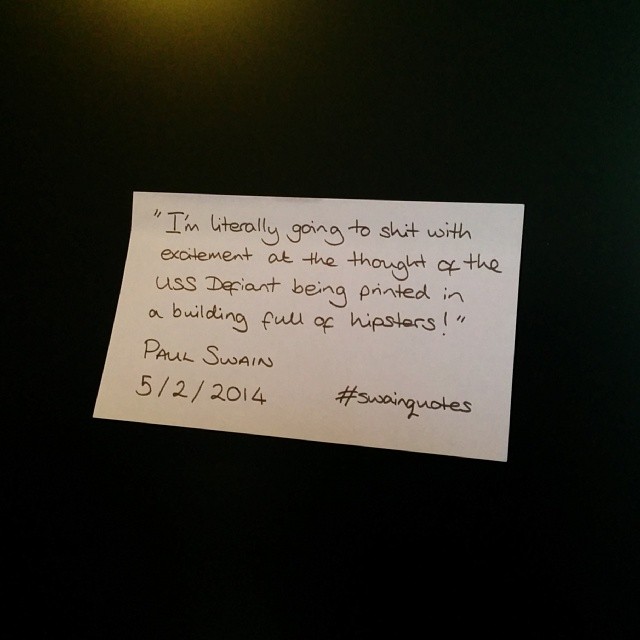 "I'm literally going to shit with
excitement at the thought of the
USS Defiant being printed in
a building full of hipsters!"
PAUL SWAIN
5/2/2014 #swainquotes